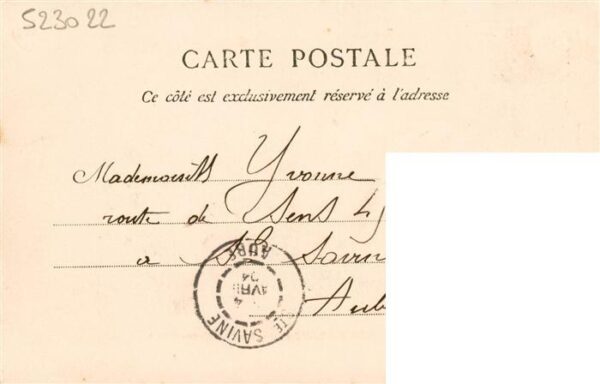 523022
CARTE POSTALE
Ce côté est exclusivement réservé à l'adresse
Mademoiselle Yvonne
route de Sens 45
a Ste Savin
Aub
STE SAVINE
4
AVRIL
04
AUBE